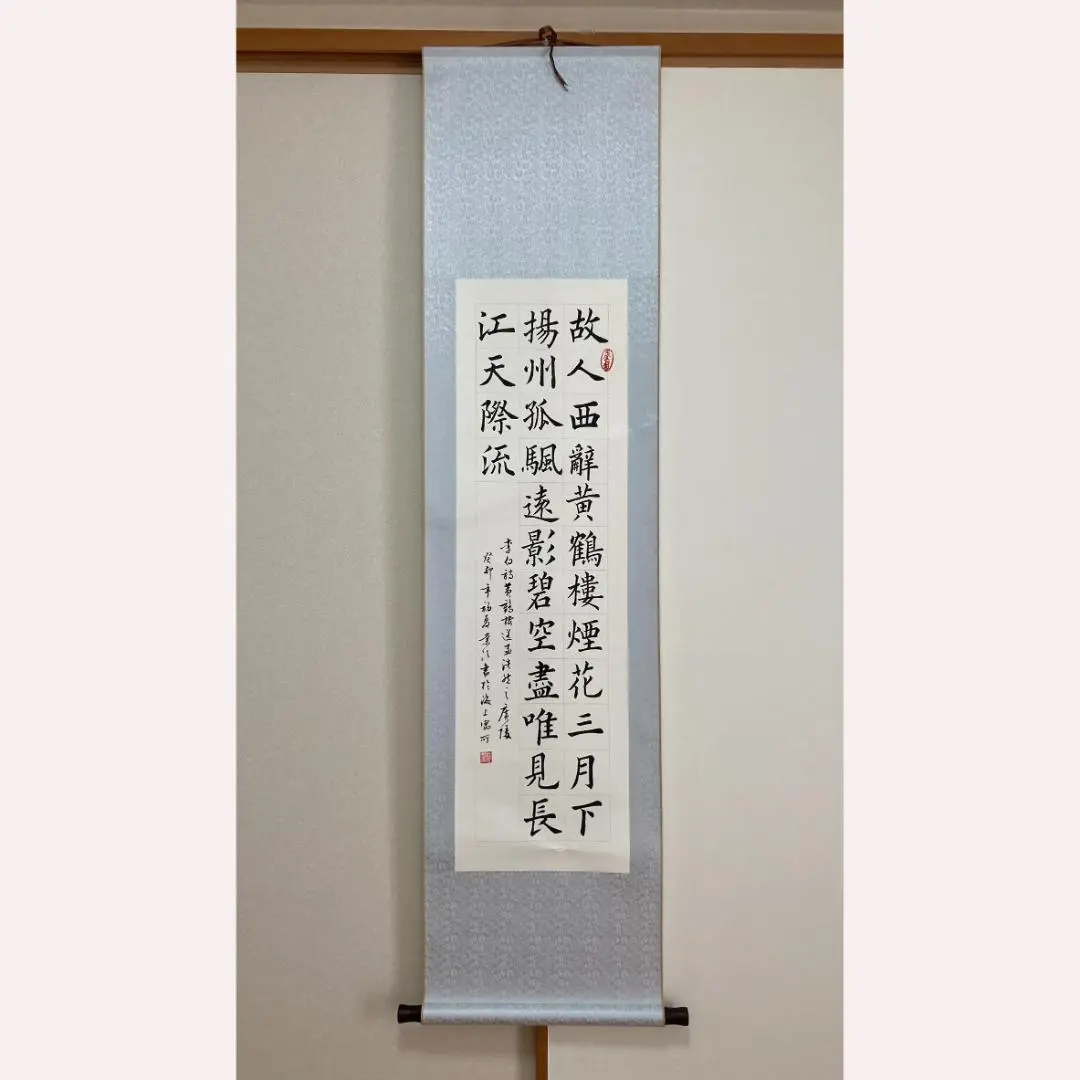 故人西辭黄鶴樓煙花三月下
揚州孤颿遠影碧空盡唯見長
江天際流
李白詩黄鶴樓送孟浩然之廣陵
癸卯年